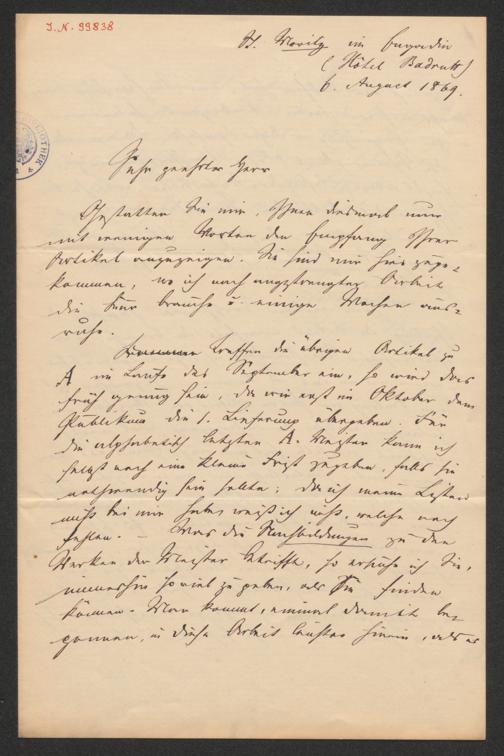 I.N. 99838
St. Moritz im Engadin
(Hôtel Badrutt)
6. August 1869.
BIBLIOTHEK
Sehr geehrter Herr
Gestatten Sie mir, Ihnen diesmal nur
mit wenigen Worten den Empfang Ihrer
Artikel anzuzeigen. Sie sind mir hier zuge-
kommen, wo ich nach angestrengter Arbeit
die Kur brauche u. einige Wochen aus-
ruhe.
treffen die übrigen Artikel zu
A im Laufe des September ein, so wird das
früh genug sein, da wir erst im Oktober dem
Publikum die 1. Lieferung übergeben. Für
die alphabetisch letzten A. Meister kann ich
selbst noch eine kleine Frist zugeben, falls sie
nothwendig sein sollte; da ich meine Listen
nicht bei mir habe, weiß ich nicht, welche noch
fehlen. – Was die Nachbildungen zu den
Werken der Meister betrifft, so ersuche ich Sie,
immerhin so viel zu geben, als Sie finden
können. Man kommt, einmal damit be-
gonnen, in diese Arbeit leichter hinein, als es